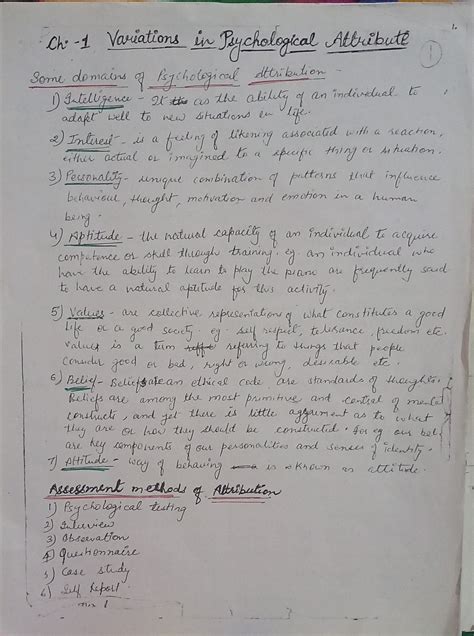 1.
Ch:-1 Variations in Psychological Attribute
1
Some domains of Psychological Attribution -
1) Intelligence - It is the ability of an individual to
adapt well to new situations in life.
2) Interest - is a feeling of likening associated with a reaction,
either actual or imagined to a specific thing or situation.
3) Personality - unique combination of patterns that influence
behaviour, thought, motivation and emotion in a human
being.
4) Aptitude - the natural capacity of an individual to acquire
competence or skill through training. eg. an individual who
have the ability to learn to play the piano are frequently said
to have a natural aptitude for this activity.
5) Values - are collective representations of what constitutes a good
life or a good society. eg. self respect, tolerance, freedom etc.
values is a term referring to things that people
consider good or bad, right or wrong, desirable etc.
6) Belief - Beliefs are an ethical code, are standards of thoughts.
Beliefs are among the most primitive and central of mental
constructs, and yet there is little agreement as to what
they are or how they should be constructed. for eg our bel
are key components of our personalities and senses of identity.
7) Attitude - way of behaving is known as attitude.
Assessment methods of Attribution
1) Psychological testing
2) Interview
3) Observation
4) Questionnaire
5) Case study
6) Self Report